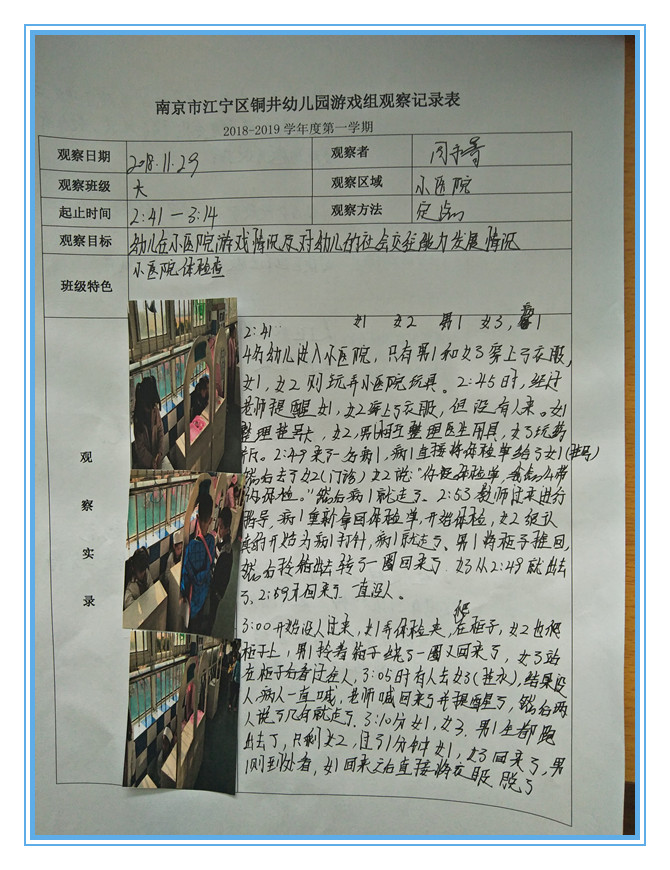 南京市江宁区铜井幼儿园游戏组观察记录表
2018-2019 学年度第一学期
观察日期 2018.11.29 观察者
观察班级 大 观察区域 小医院
起止时间 2:41—3:14 观察方法 定点
观察目标 幼儿在小医院游戏情况及对幼儿的社会交往能力发展情况
班级特色 小医院体检查
观察实录
2:41 女1 女2 男1 女3, 病1
4名幼儿进入小医院,只有男1和女3穿上了衣服,
女1,女2则玩弄小医院玩具。2:45时,经过
老师提醒女1,女2穿上了衣服,但没有人来。女1
整理挂号,女2,男1相互整理医生用具,女3玩药
2:49来了一名病1,病1直接将体检单给了女1
然后去了女2(门诊)女2说:"你没体检单,
体检。"然后病1就走了。2:53教师过来进行
指导,病1重新拿回体检单,开始体检,女2
开始为病1打针,病1就走了。男1将柜子推回,
然后拎箱出去转了一圈回来了 女3从2:49就出去
了,2:59才回来了 一直没人。
3:00开始没人过来,女1弄体检夹,爬在柜子,女2也爬
柜子上,男1拎着箱子绕了一圈又回来了,女3站
在柜子旁看过往人,3:05时有人去女3(挂水),结果没
人,病人一直喊,老师喊回来了并提醒了,然后两
人说了几句就走了。3:10分女1,女3,男1全都跑
出去了,只剩女2,过了1分钟女1,女3回来了,男
1则到处看,女1回来之后直接将衣服脱了